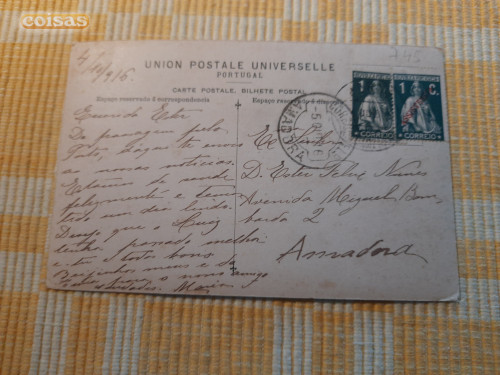 coisas
745
4/10/916
UNION POSTALE UNIVERSELLE
PORTUGAL
CARTE POSTALE, BILHETE POSTAL
Espaço reservado á correspondencia
Espaço reservado á
1 C.
CORREIO
1 C.
CORREIO
Querida Ester
De passagem pelo
Porto,
as nossas noticias.
Estamos de saude
felizmente e temos
tido um dia lindo.
Desejo que o Luiz
tenha passado melhor
e todos bons
Beijinhos meus e do
amigo
Maria
D. Ester Felix Nunes
Avenida Miguel Bom-
barda 2
Amadora